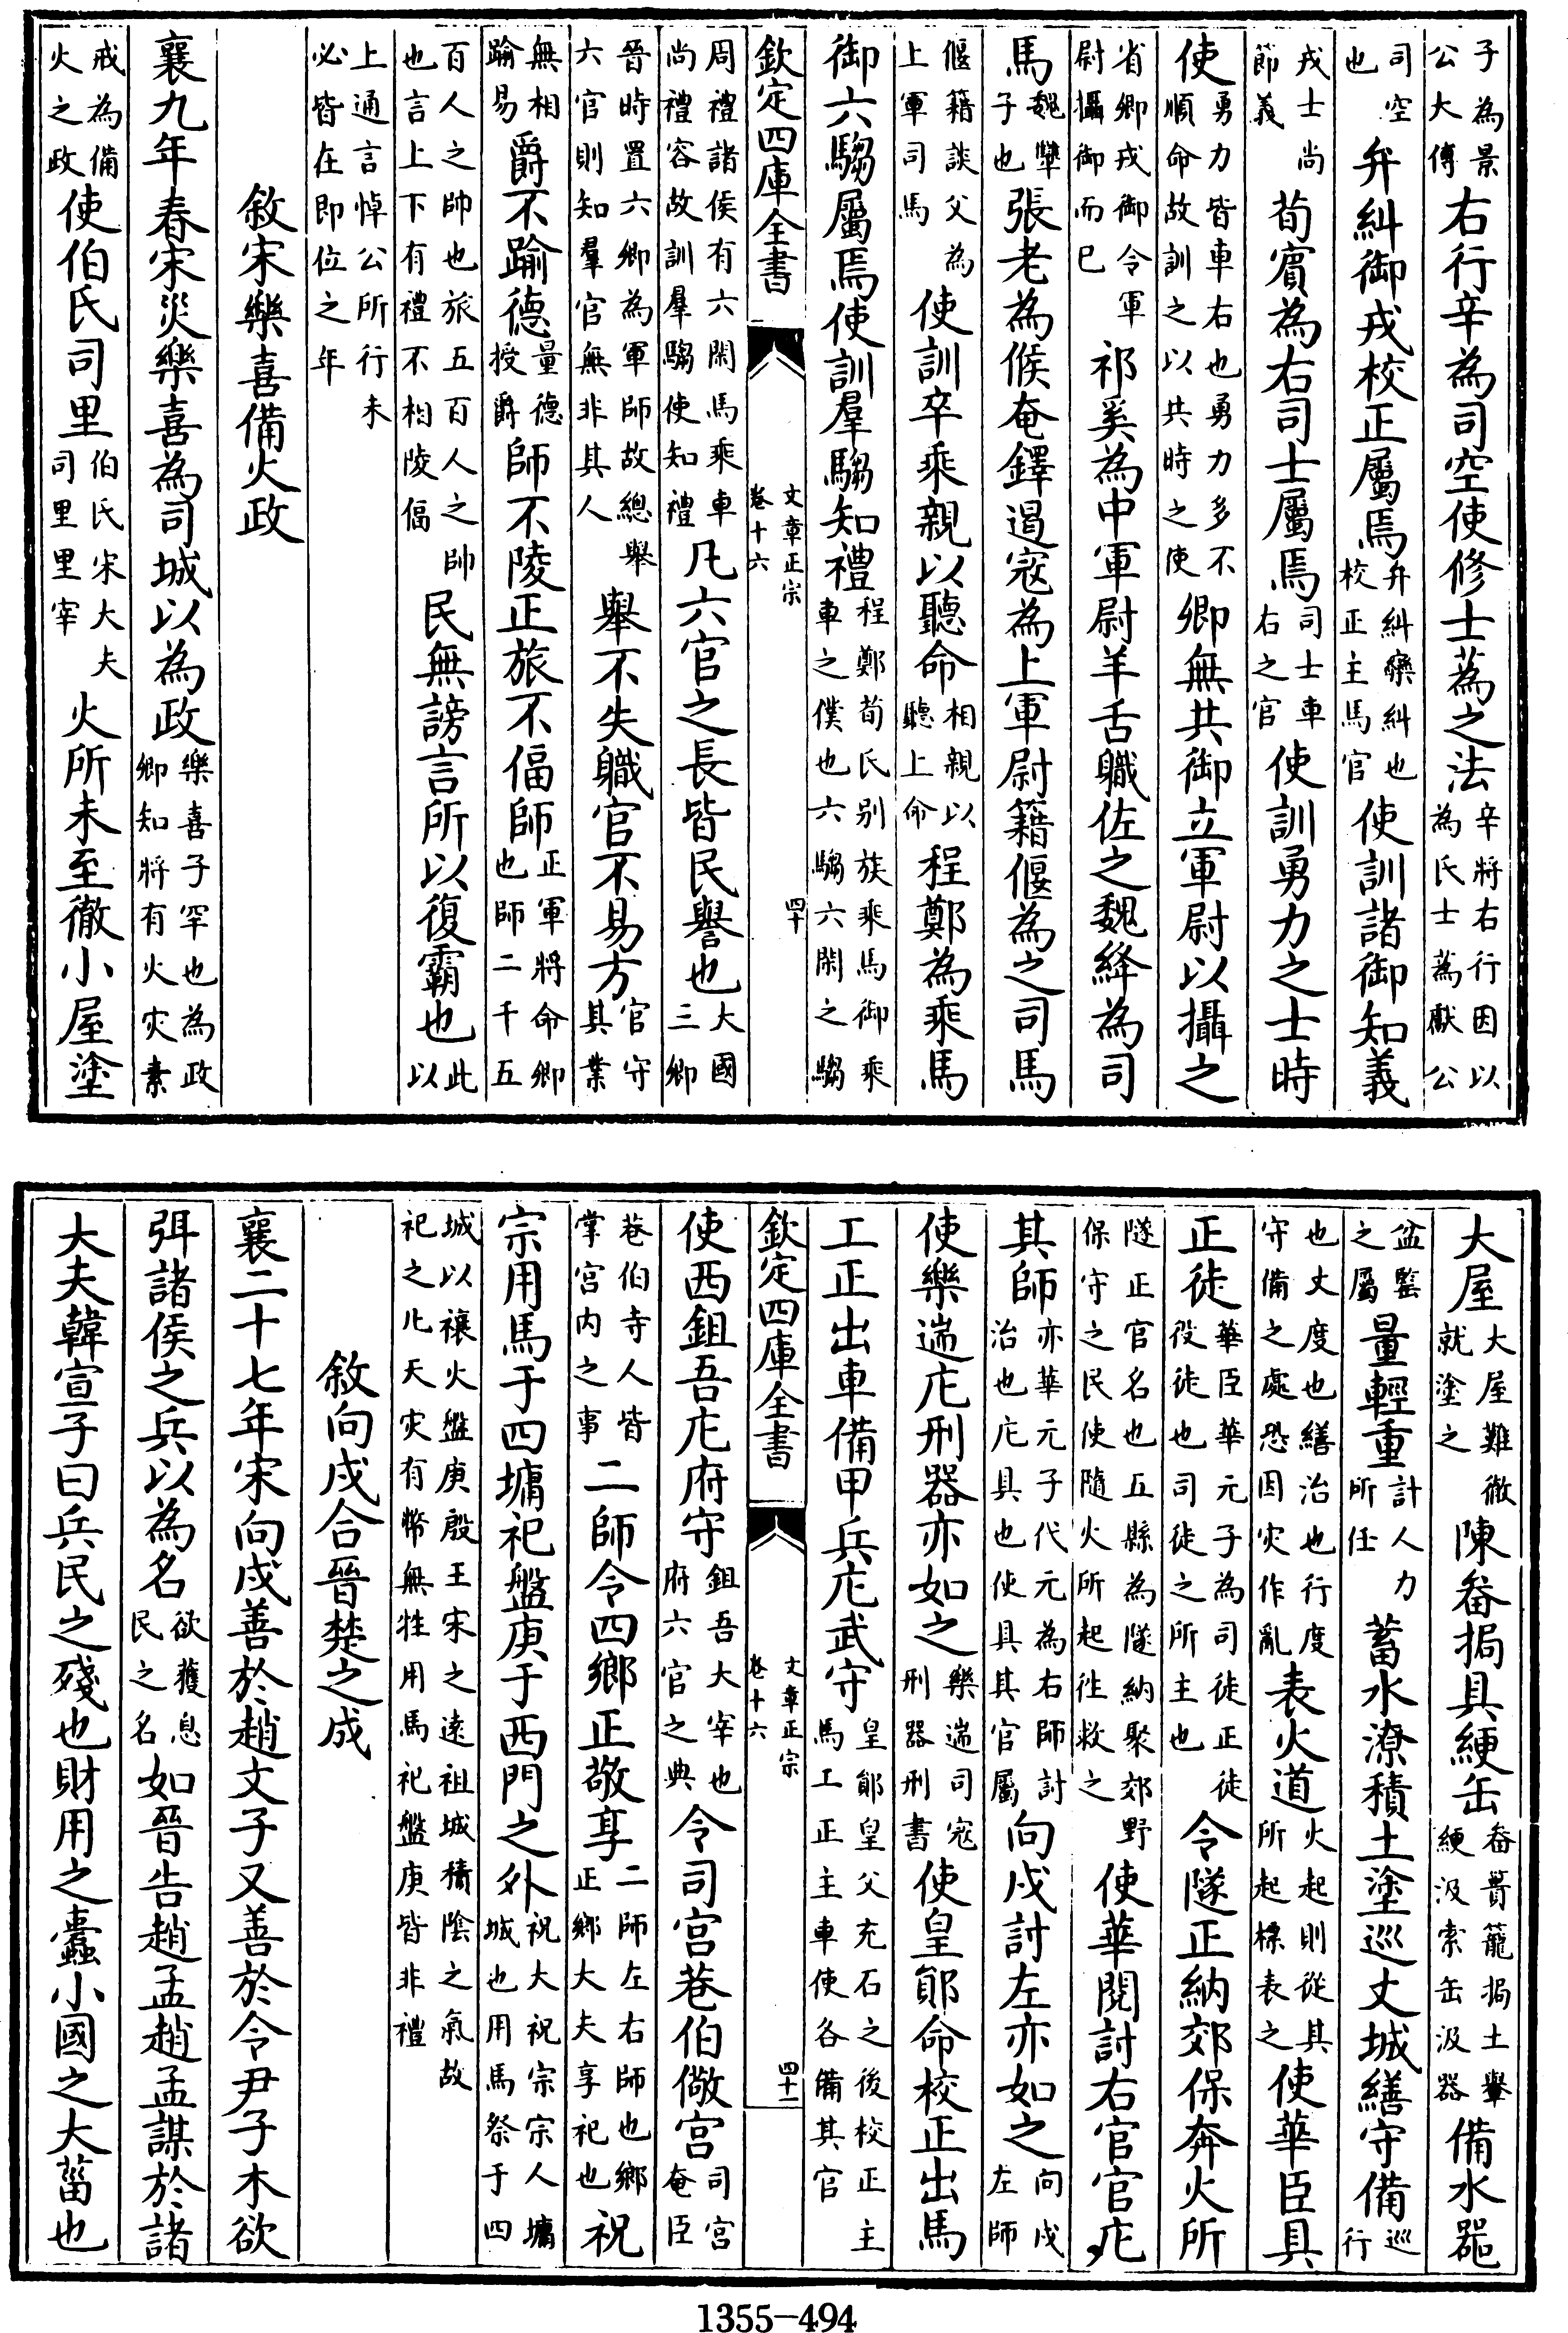 子為景公大傅右行辛為司空使修士蒍之法辛將右行因以為氏士蒍獻公
司空也弁糾御戎校正屬焉弁糾欒糾也校正主馬官使訓諸御知義
戎士尚節義荀賔為右司士屬焉司士車右之官使訓勇力之士時
使勇力皆車右也勇力多不順命故訓之以共時之使卿無共御立軍尉以攝之
省卿戎御令軍尉攝御而已祁奚為中軍尉羊舌職佐之魏絳為司
馬魏犨子也張老為候奄鐸遏寇為上軍尉籍偃為之司馬
偃籍談父為上軍司馬使訓卒乘親以聽命相親以聽上命程鄭為乘馬
御六騶屬焉使訓羣騶知禮程鄭荀氏别族乘馬御乘車之僕也六騶六閑之騶
欽定四庫全書
文章正宗
卷十六
四十
周禮諸侯有六閑馬乘車尚禮容故訓羣騶使知禮凡六官之長皆民譽也大國三卿
晉時置六卿為軍師故總舉六官則知羣官無非其人舉不失職官不易方官守其業
無相踰易爵不踰德量德授爵師不陵正旅不偪師正軍將命卿也師二千五
百人之帥也旅五百人之帥也言上下有禮不相陵偪民無謗言所以復霸也此以
上通言悼公所行未必皆在即位之年
敘宋樂喜備火政
襄九年春宋災樂喜為司城以為政樂喜子罕也為政卿知將有火灾素
戒為備火之政使伯氏司里伯氏宋大夫司里里宰火所未至徹小屋塗
大屋大屋難徹就塗之陳畚挶具綆缶畚蕢籠挶土轝綆汲索缶汲器備水噐
盆䥐之屬量輕重計人力所任蓄水潦積土塗巡丈城繕守備巡行
也丈度也繕治也行度守備之處恐因灾作亂表火道火起則從其所起標表之使華臣具
正徒華臣華元子為司徒正徒役徒也司徒之所主也令隧正納郊保奔火所
隧正官名也五縣為隧納聚郊野保守之民使隨火所起徃救之使華閱討右官官庀
其師亦華元子代元為右師討治也庀具也使具其官屬向戌討左亦如之向戌左師
使樂遄庀刑器亦如之樂遄司寇刑器刑書使皇鄖命校正出馬
工正出車備甲兵庀武守皇鄖皇父充石之後校正主馬工正主車使各備其官
欽定四庫全書
文章正宗
卷十六
四十一
使西鉏吾庀府守鉏吾大宰也府六官之典令司宫巷伯儆宫司宫奄臣
巷伯寺人皆掌宫内之事二師令四鄉正敬享二師左右師也鄉正鄉大夫享祀也祝
宗用馬于四墉祀盤庚于西門之外祝大祝宗宗人墉城也用馬祭于四
城以禳火盤庚殷王宋之逺祖城積陰之氣故祀之凡天灾有幣無牲用馬祀盤庚皆非禮
敘向戌合晉楚之成
襄二十七年宋向戌善於趙文子又善於令尹子木欲
弭諸侯之兵以為名欲獲息民之名如晉告趙孟趙孟謀於諸
大夫韓宣子曰兵民之殘也財用之蠹小國之大菑也
1355-494